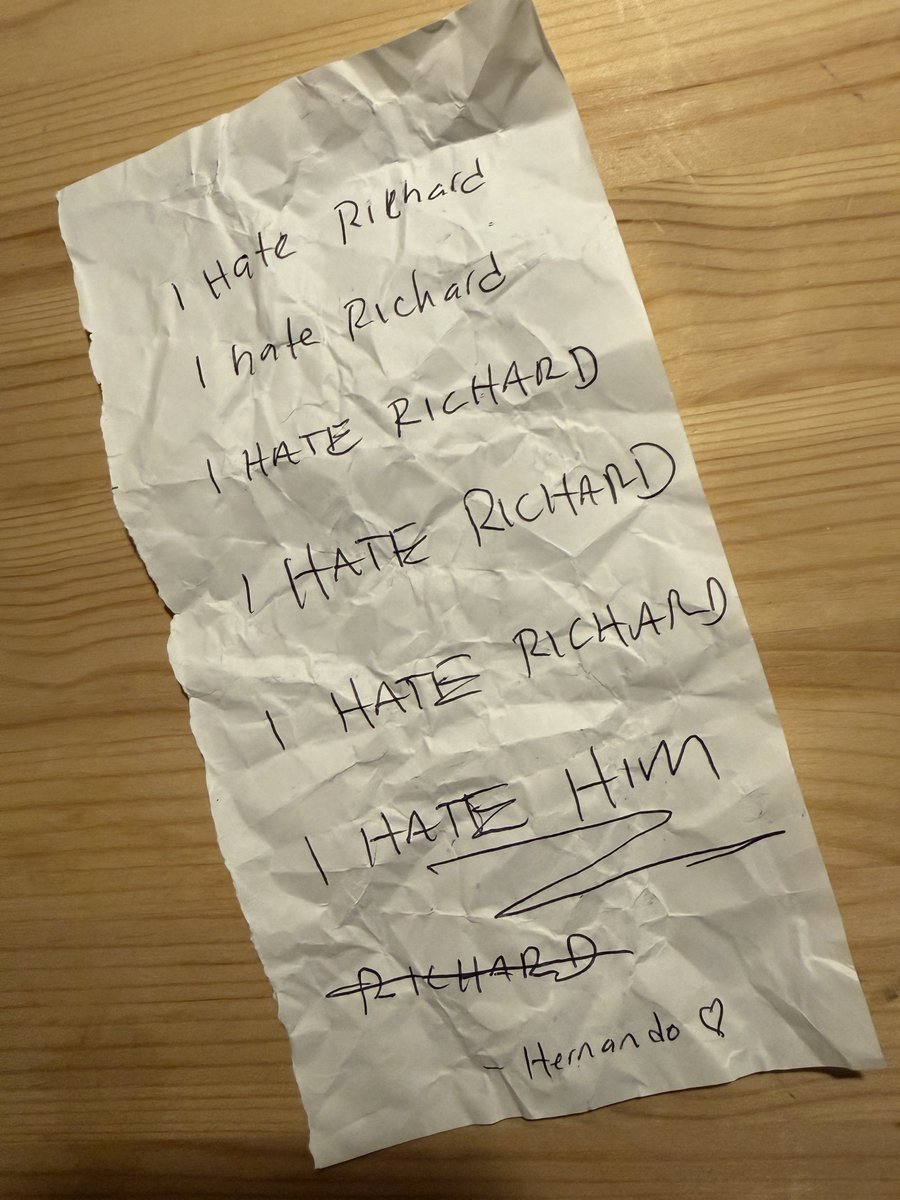 I Hate Richard
I hate Richard
I HATE RICHARD
I HATE RICHARD
I HATE RICHARD
I HATE HIM
RICHARD
- Hernando ♡